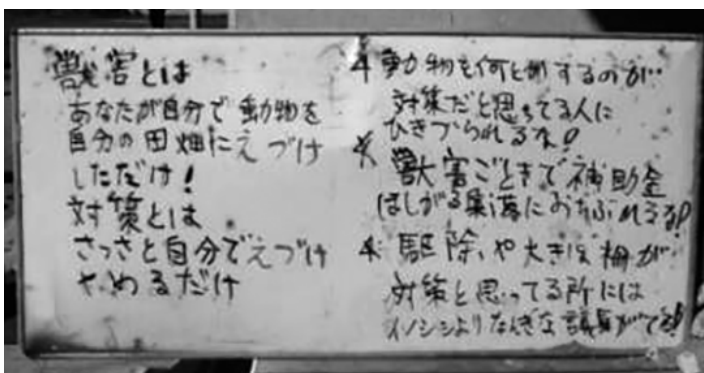 獣害とは
あなたが自分で動物を
自分の田畑にえづけ
しただけ！
対策とは
さっさと自分でえづけ
やめるだけ
動物を何と するのが…
対策だと思ってる人に
ひきづられるな！
獣害ごときで補助金
ほしがる集落におちぶれるな！
駆除、や大きな柵が
対策と思ってる所には
イノシシよりなんぎな議員がでる！